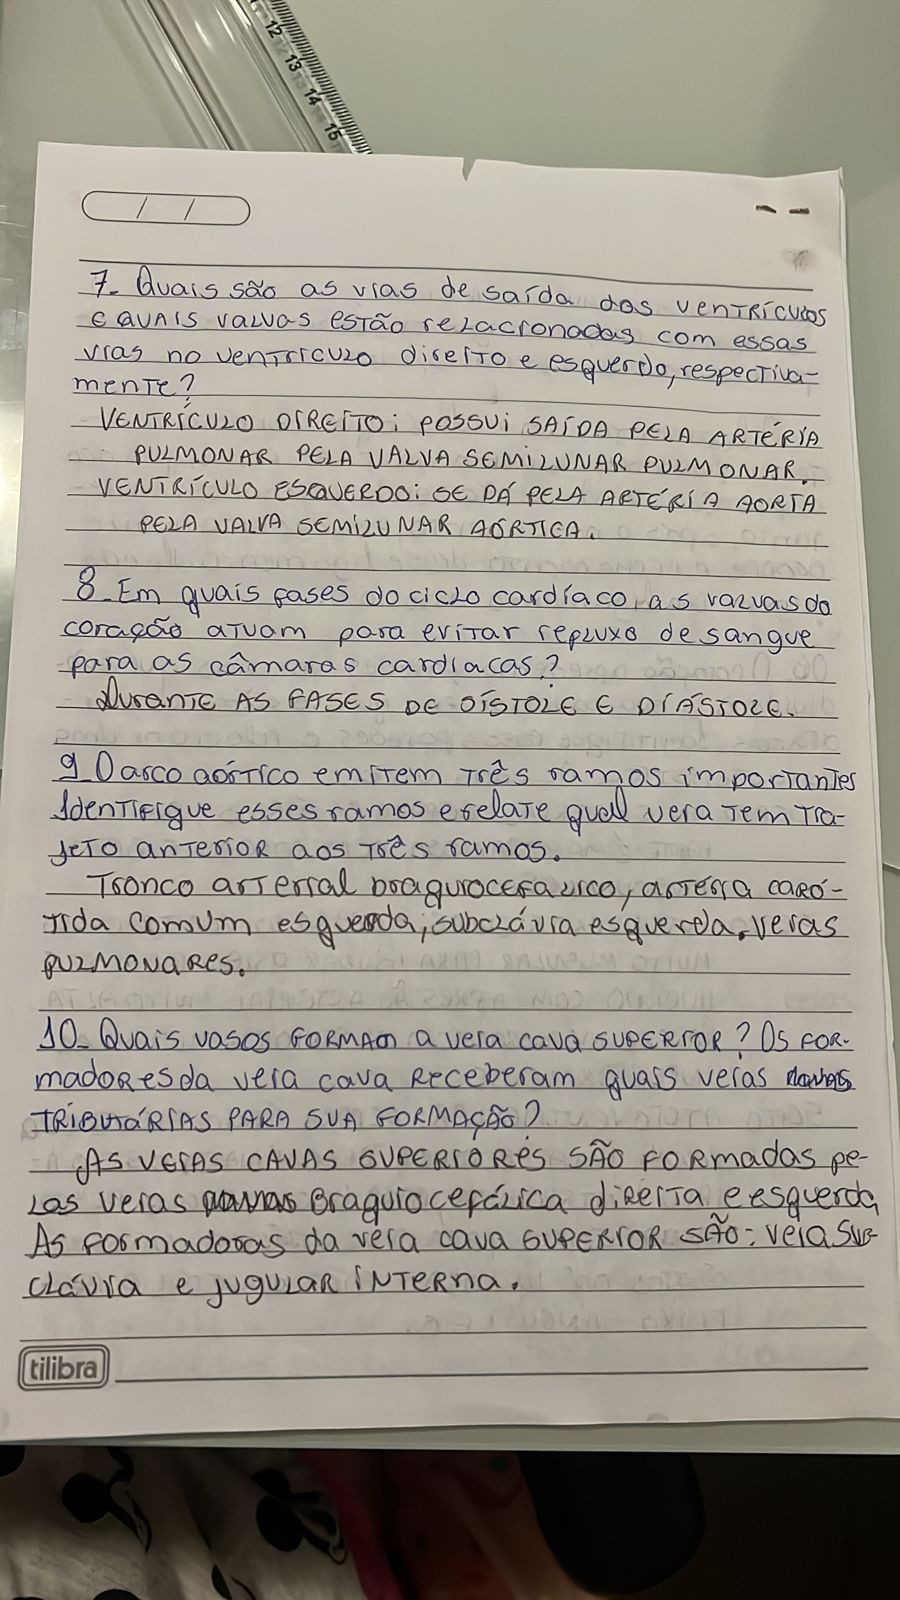 12 13 14 15
7- Quais são as vias de saída dos ventrículos
e quais valvas estão relacionadas com essas
vias no ventrículo direito e esquerdo, respectiva-
mente?
VENTRÍCULO DIREITO: POSSUI SAÍDA PELA ARTÉRIA
PULMONAR PELA VALVA SEMILUNAR PULMONAR.
VENTRÍCULO ESQUERDO: SE DÁ PELA ARTÉRIA AORTA
PELA VALVA SEMILUNAR AÓRTICA.
8- Em quais fases do ciclo cardíaco, as valvas do
coração atuam para evitar refluxo de sangue
para as câmaras cardíacas?
Durante AS FASES DE SÍSTOLE E DIÁSTOLE.
9- O arco aórtico emitem três ramos importantes
Identifique esses ramos e relate qual veia tem tra-
jeto anterior aos três ramos.
Tronco arterial braquiocefálico, artéria caró-
tida comum esquerda, subclávia esquerda, veias
pulmonares.
10- Quais vasos formam a veia cava superior? Os for-
madores da veia cava receberam quais veias
TRIBUTÁRIAS PARA SUA FORMAÇÃO?
AS VEIAS CAVAS SUPERIORES SÃO FORMADAS pe-
las veias Braquiocefálica direita e esquerda,
As formadoras da veia cava SUPERIOR SÃO: veia SUB-
clávia e jugular INTERNA.
tilibra